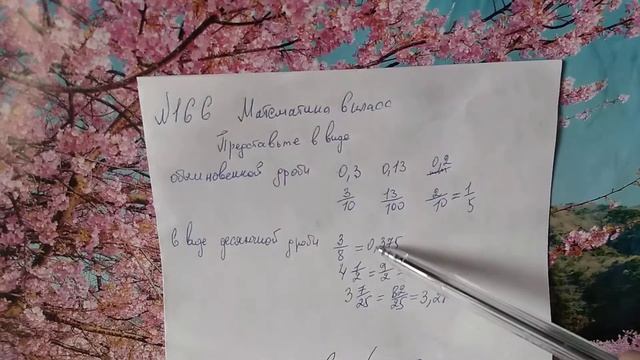 №166 Математика 6 класс
Представьте в виде
обыкновенной дроби 0,3 0,13 0,2
3/10 13/100 2/10 = 1/5
в виде десятичной дроби 3/8 = 0,375
4 1/2 = 9/2 =
3 7/25 = 82/25 = 3,2